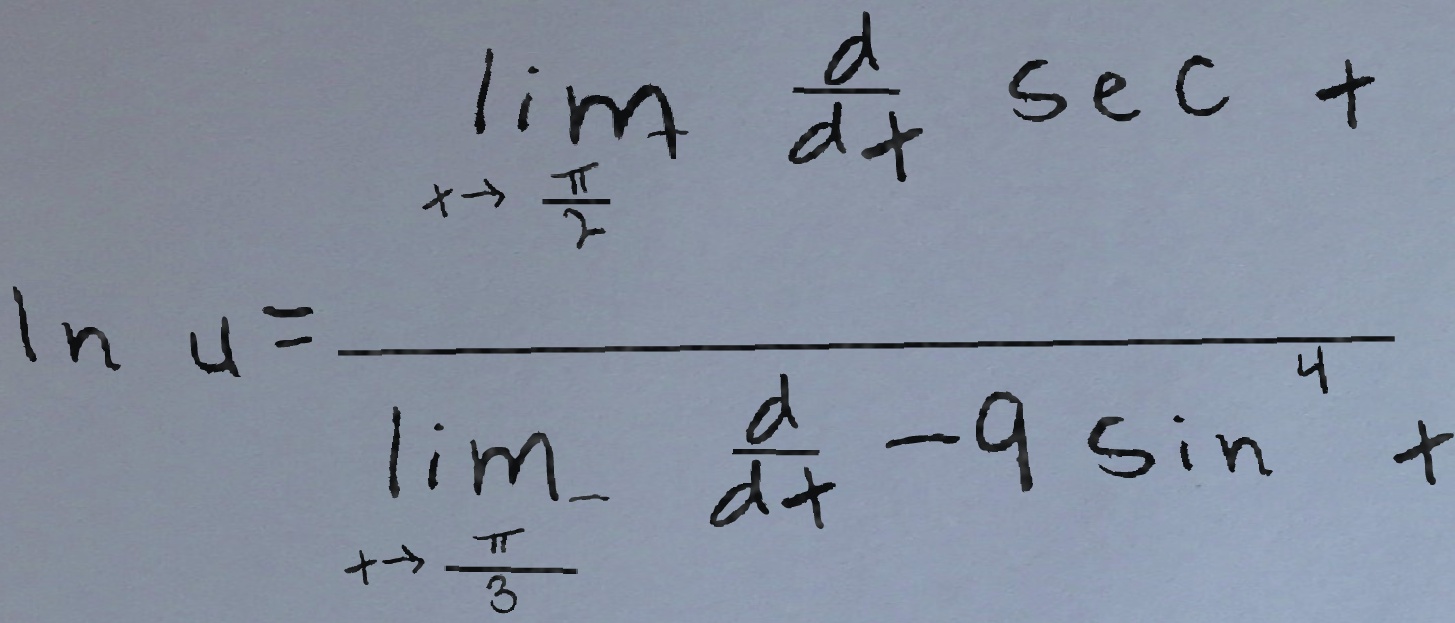 \ln u = \frac{\lim_{x \to \frac{\pi}{2}} \frac{d}{dx} \sec x}{\lim_{x \to \frac{\pi}{3}^{-}} \frac{d}{dx} -9 \sin^{4} x}